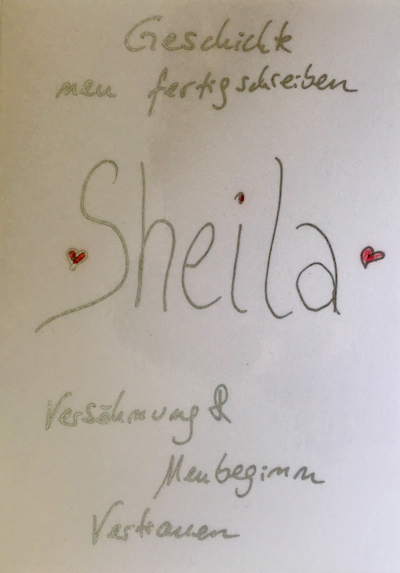 Geschichte
neu fertigschreiben
Sheila
Versöhnung &
Neubeginn
Vertrauen